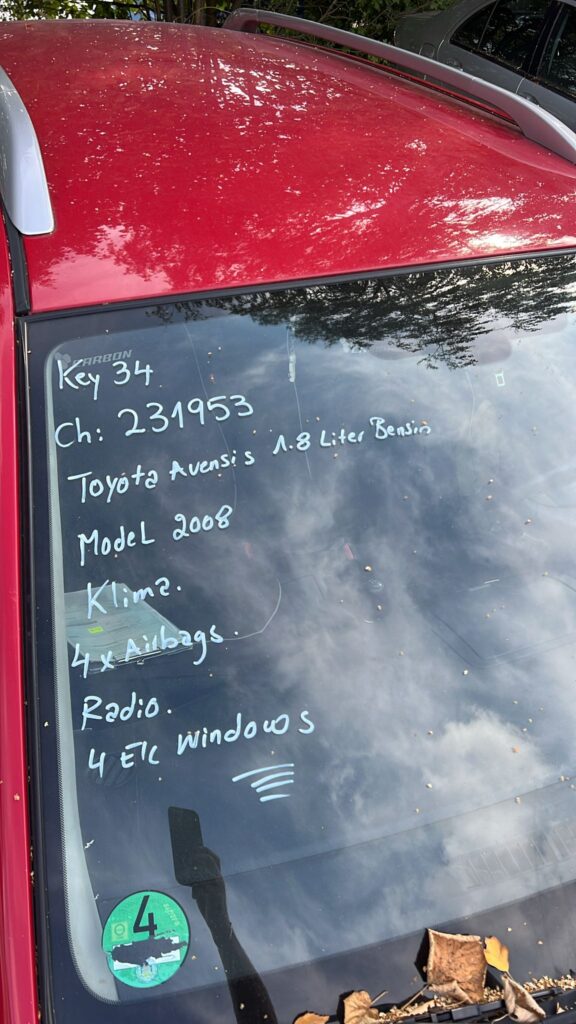 CARBON
Key 34
Ch: 231953
Toyota Avensis 1.8 Liter Bensin
Model 2008
Klima.
4 x Airbags.
Radio.
4 ETC windows
4